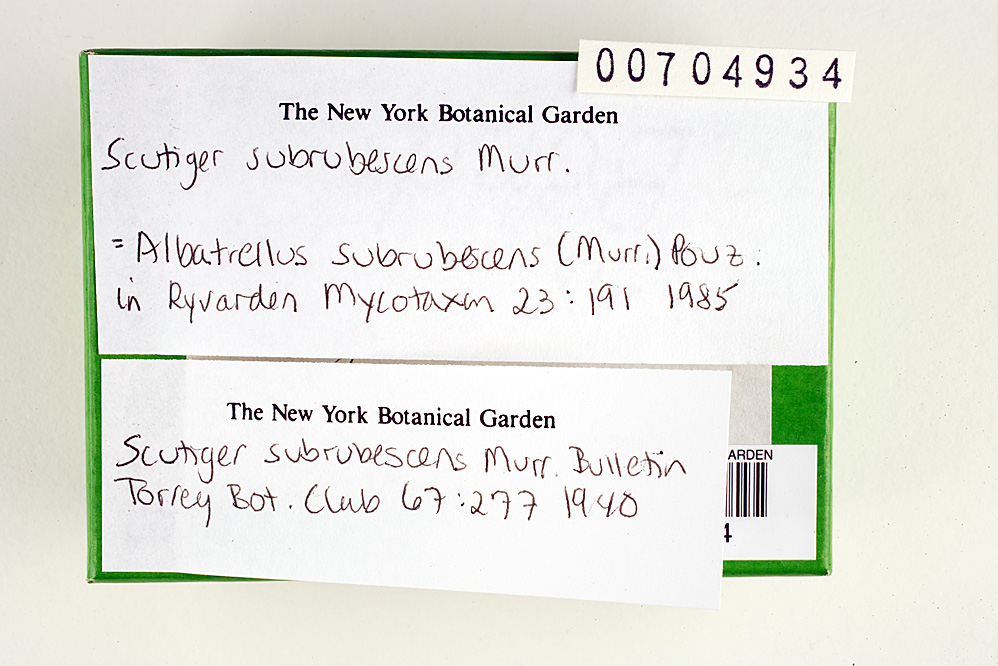 00704934
The New York Botanical Garden
Scutiger subrubescens Murr.
= Albatrellus subrubescens (Murr.) Pouz.
in Ryvarden Mycotaxon 23:191 1985
The New York Botanical Garden
Scutiger subrubescens Murr. Bulletin
Torrey Bot. Club 67:277 1940
ARDEN
4